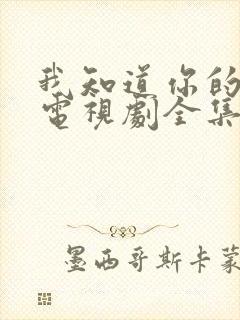 我知道你的
電視劇全集
墨西哥斯卡蒙